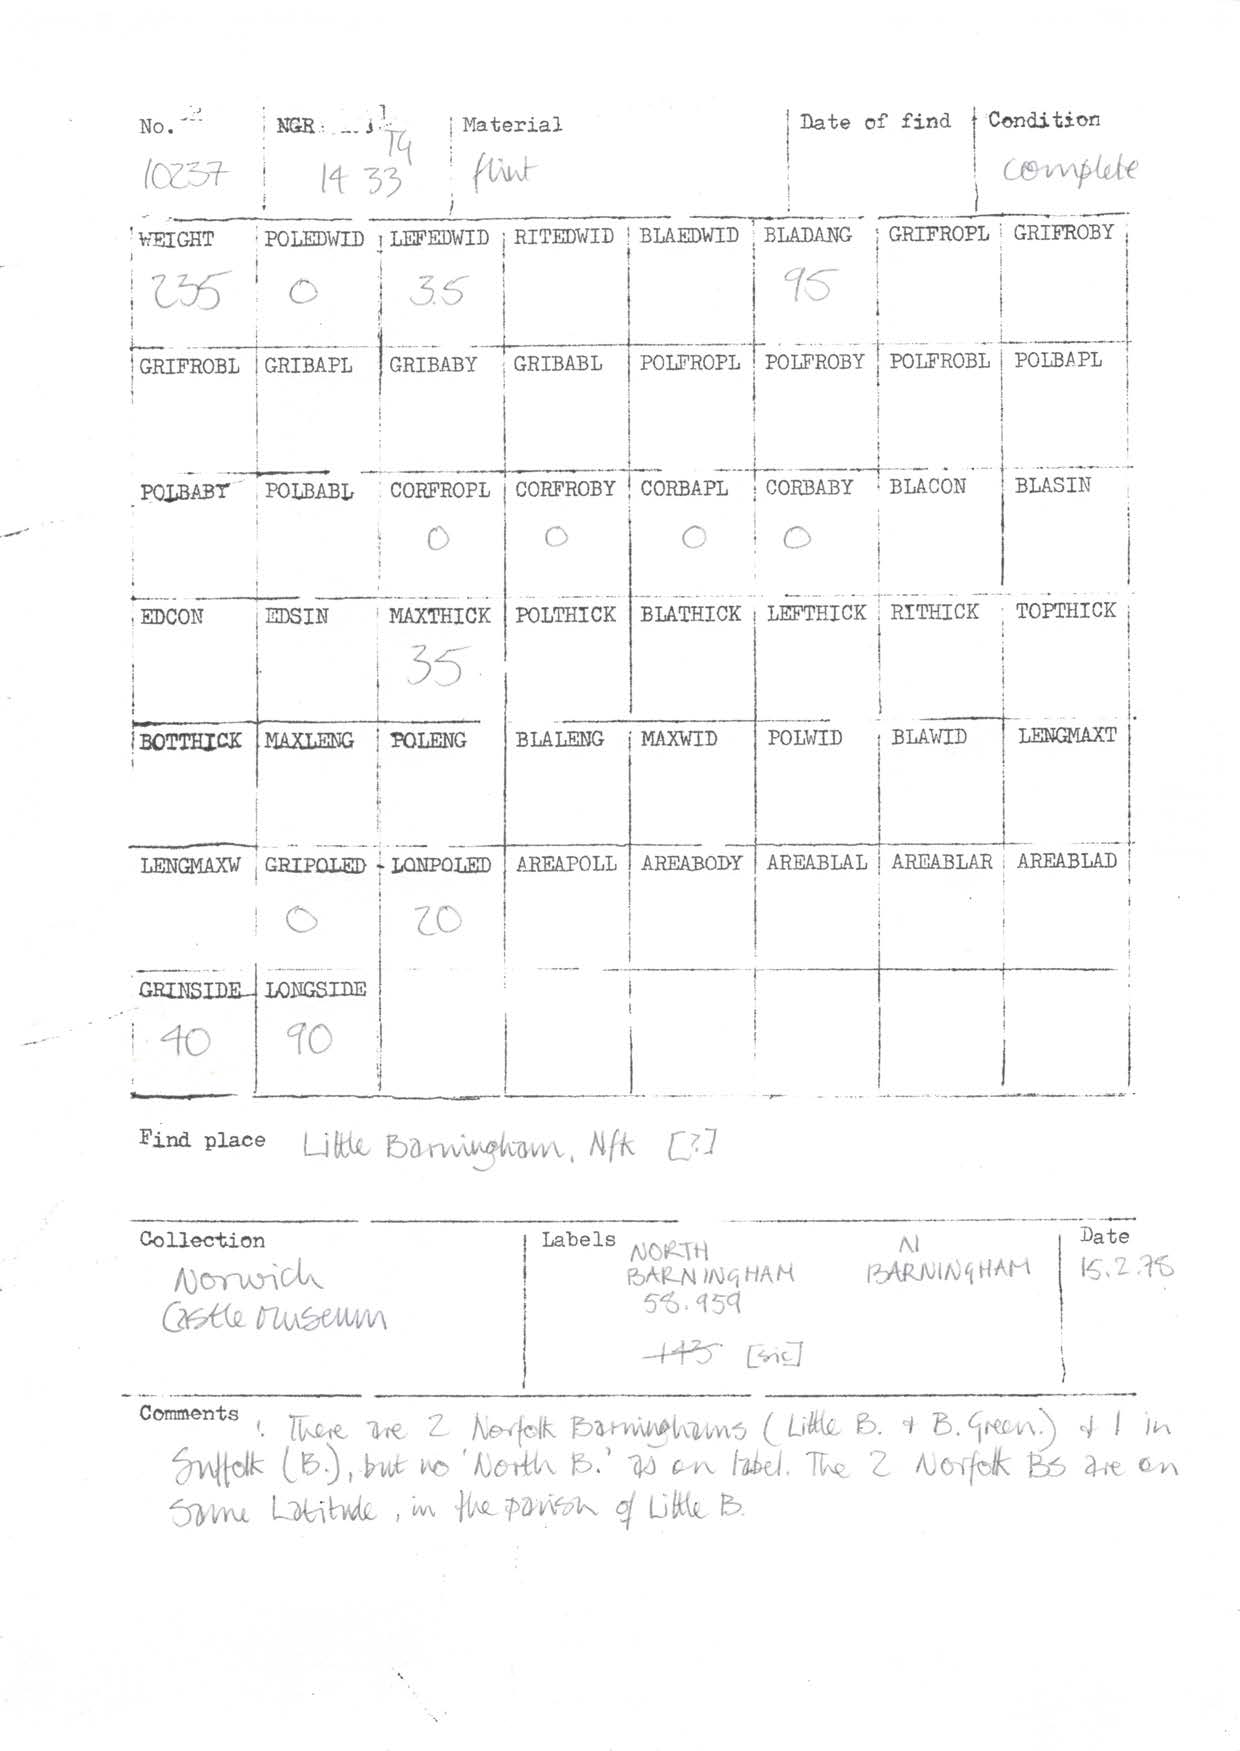 No. NGR: Material Date of find Condition
TG
10237 14 33 flint complete
WEIGHT POLEDWID LEFEDWID RITEDWID BLAEDWID BLADANG GRIFROPL GRIFROBY
235 0 3.5 95
GRIFROBL GRIBAPL GRIBABY GRIBABL POLFROPL POLFROBY POLFROBL POLBAPL
POLBABY POLBABL CORFROPL CORFROBY CORBAPL CORBABY BLACON BLASIN
0 0 0 0
EDCON EDSIN MAXTHICK POLTHICK BLATHICK LEFTHICK RITHICK TOPTHICK
35
BOTTHICK MAXLENG POLENG BLALENG MAXWID POLWID BLAWID LENGMAXT
LENGMAXW GRIPOLED LONPOLED AREAPOLL AREABODY AREABLAL AREABLAR AREABLAD
0 20
GRINSIDE LONGSIDE
40 90
Find place Little Barningham, Nfk [?]
Collection Labels Date
NORTH N
BARNINGHAM BARNINGHAM 15.2.78
Norwich 58.959
Castle Museum
[sic]
Comments : There are 2 Norfolk Barninghams (Little B. & B. Green.) & 1 in
Suffolk (B.), but no 'North B.' as on label. The 2 Norfolk Bs are on
same Latitude, in the parish of Little B.